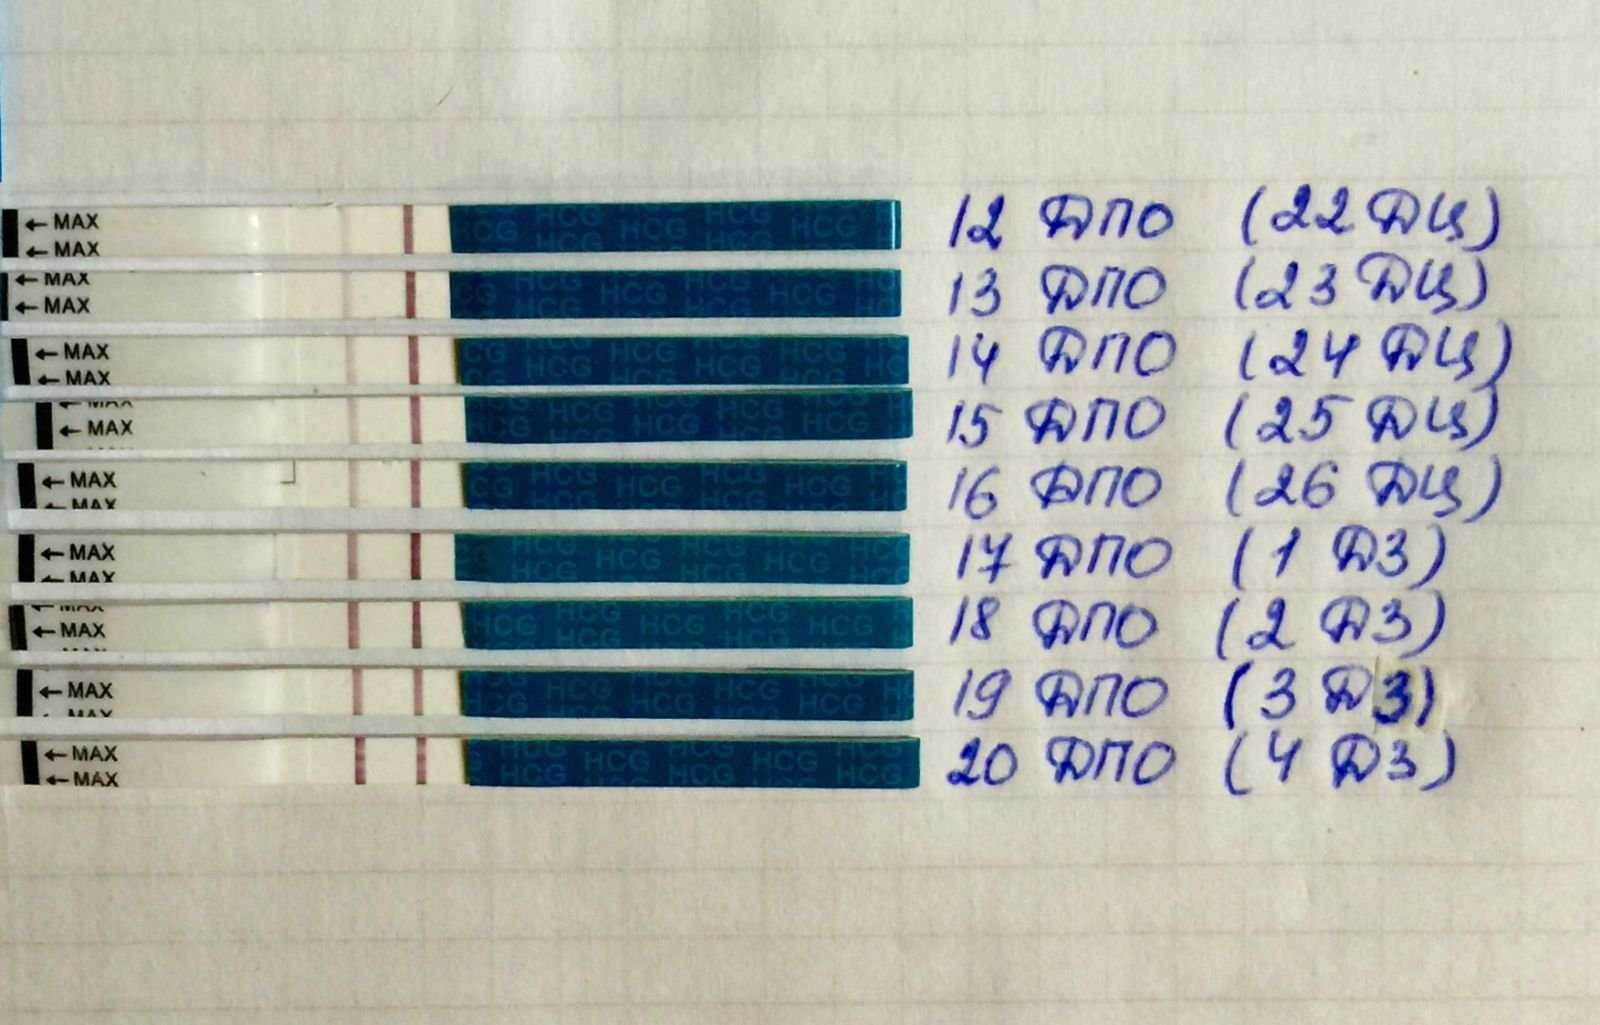 ← MAX ← MAX HCG HCG HCG HCG HCG HCG 12 ДПО (22 ДЦ)
← MAX ← MAX HCG HCG HCG HCG 13 ДПО (23 ДЦ)
← MAX ← MAX HCG HCG HCG HCG HCG 14 ДПО (24 ДЦ)
← MAX HCG HCG HCG HCG 15 ДПО (25 ДЦ)
← MAX HCG HCG HCG HCG 16 ДПО (26 ДЦ)
← MAX ← MAX HCG HCG HCG HCG HCG 17 ДПО (1 ДЗ)
← MAX HCG HCG HCG HCG HCG 18 ДПО (2 ДЗ)
← MAX HCG HCG HCG HCG 19 ДПО (3 ДЗ)
← MAX ← MAX HCG HCG HCG HCG HCG 20 ДПО (4 ДЗ)